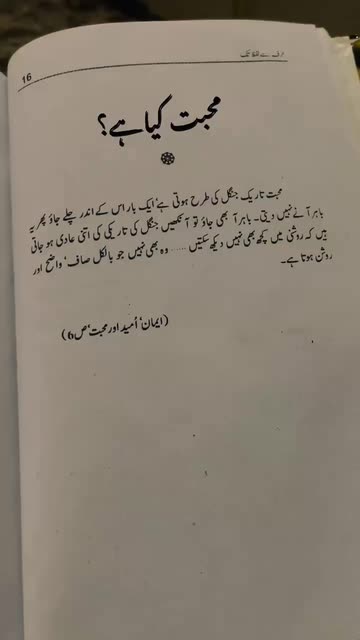 16
حرف سے لفظ تک
محبت کیا ہے؟
محبت تاریک جنگل کی طرح ہوتی ہے‘ ایک بار اس کے اندر چلے جاؤ پھر یہ
باہر آنے نہیں دیتی۔ باہر آ بھی جاؤ تو آنکھیں جنگل کی تاریکی کی اتنی عادی ہو جاتی
ہیں کہ روشنی میں کچھ بھی نہیں دیکھ سکتیں ...... وہ بھی نہیں جو بالکل صاف‘ واضح اور
روشن ہوتا ہے۔
(ایمان‘ اُمید اور محبت‘ ص 6)